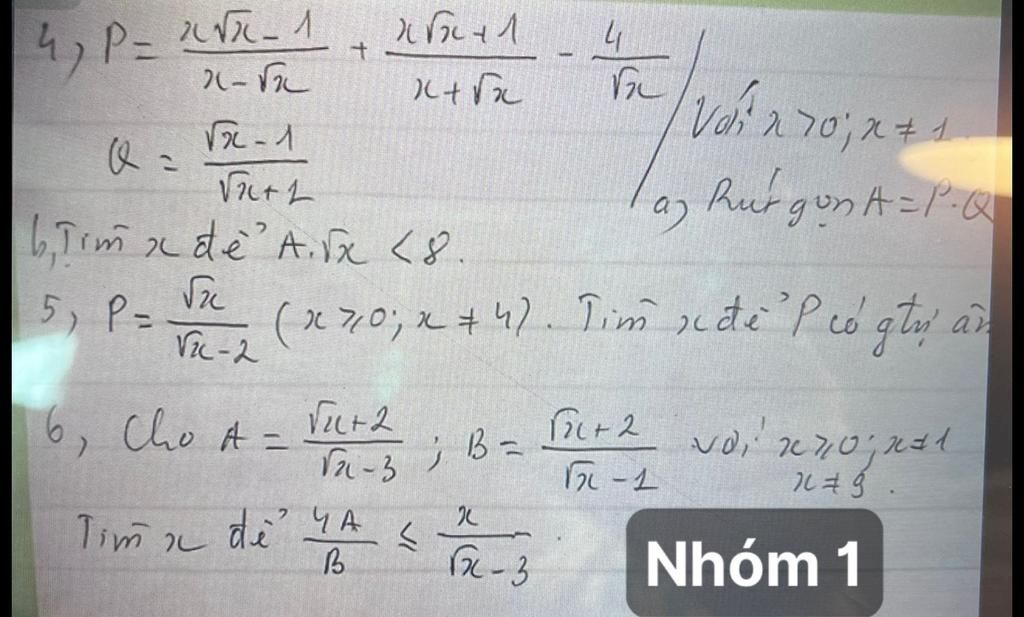 4, P = (x√x - 1)/(x - √x) + (x√x + 1)/(x + √x) - 4/√x
Với x > 0; x ≠ 1.
Q = (√x - 1)/(√x + 1)
a, Rút gọn A = P.Q
b, Tìm x để A.√x < 8.
5, P = √x/(√x - 2) (x ≥ 0; x ≠ 4). Tìm x để P có gtrị âm
6, Cho A = (√x + 2)/(√x - 3); B = (√x + 2)/(√x - 1) với x ≥ 0; x ≠ 1
x ≠ 9.
Tìm x để 4A/B ≤ x/(√x - 3).
Nhóm 1